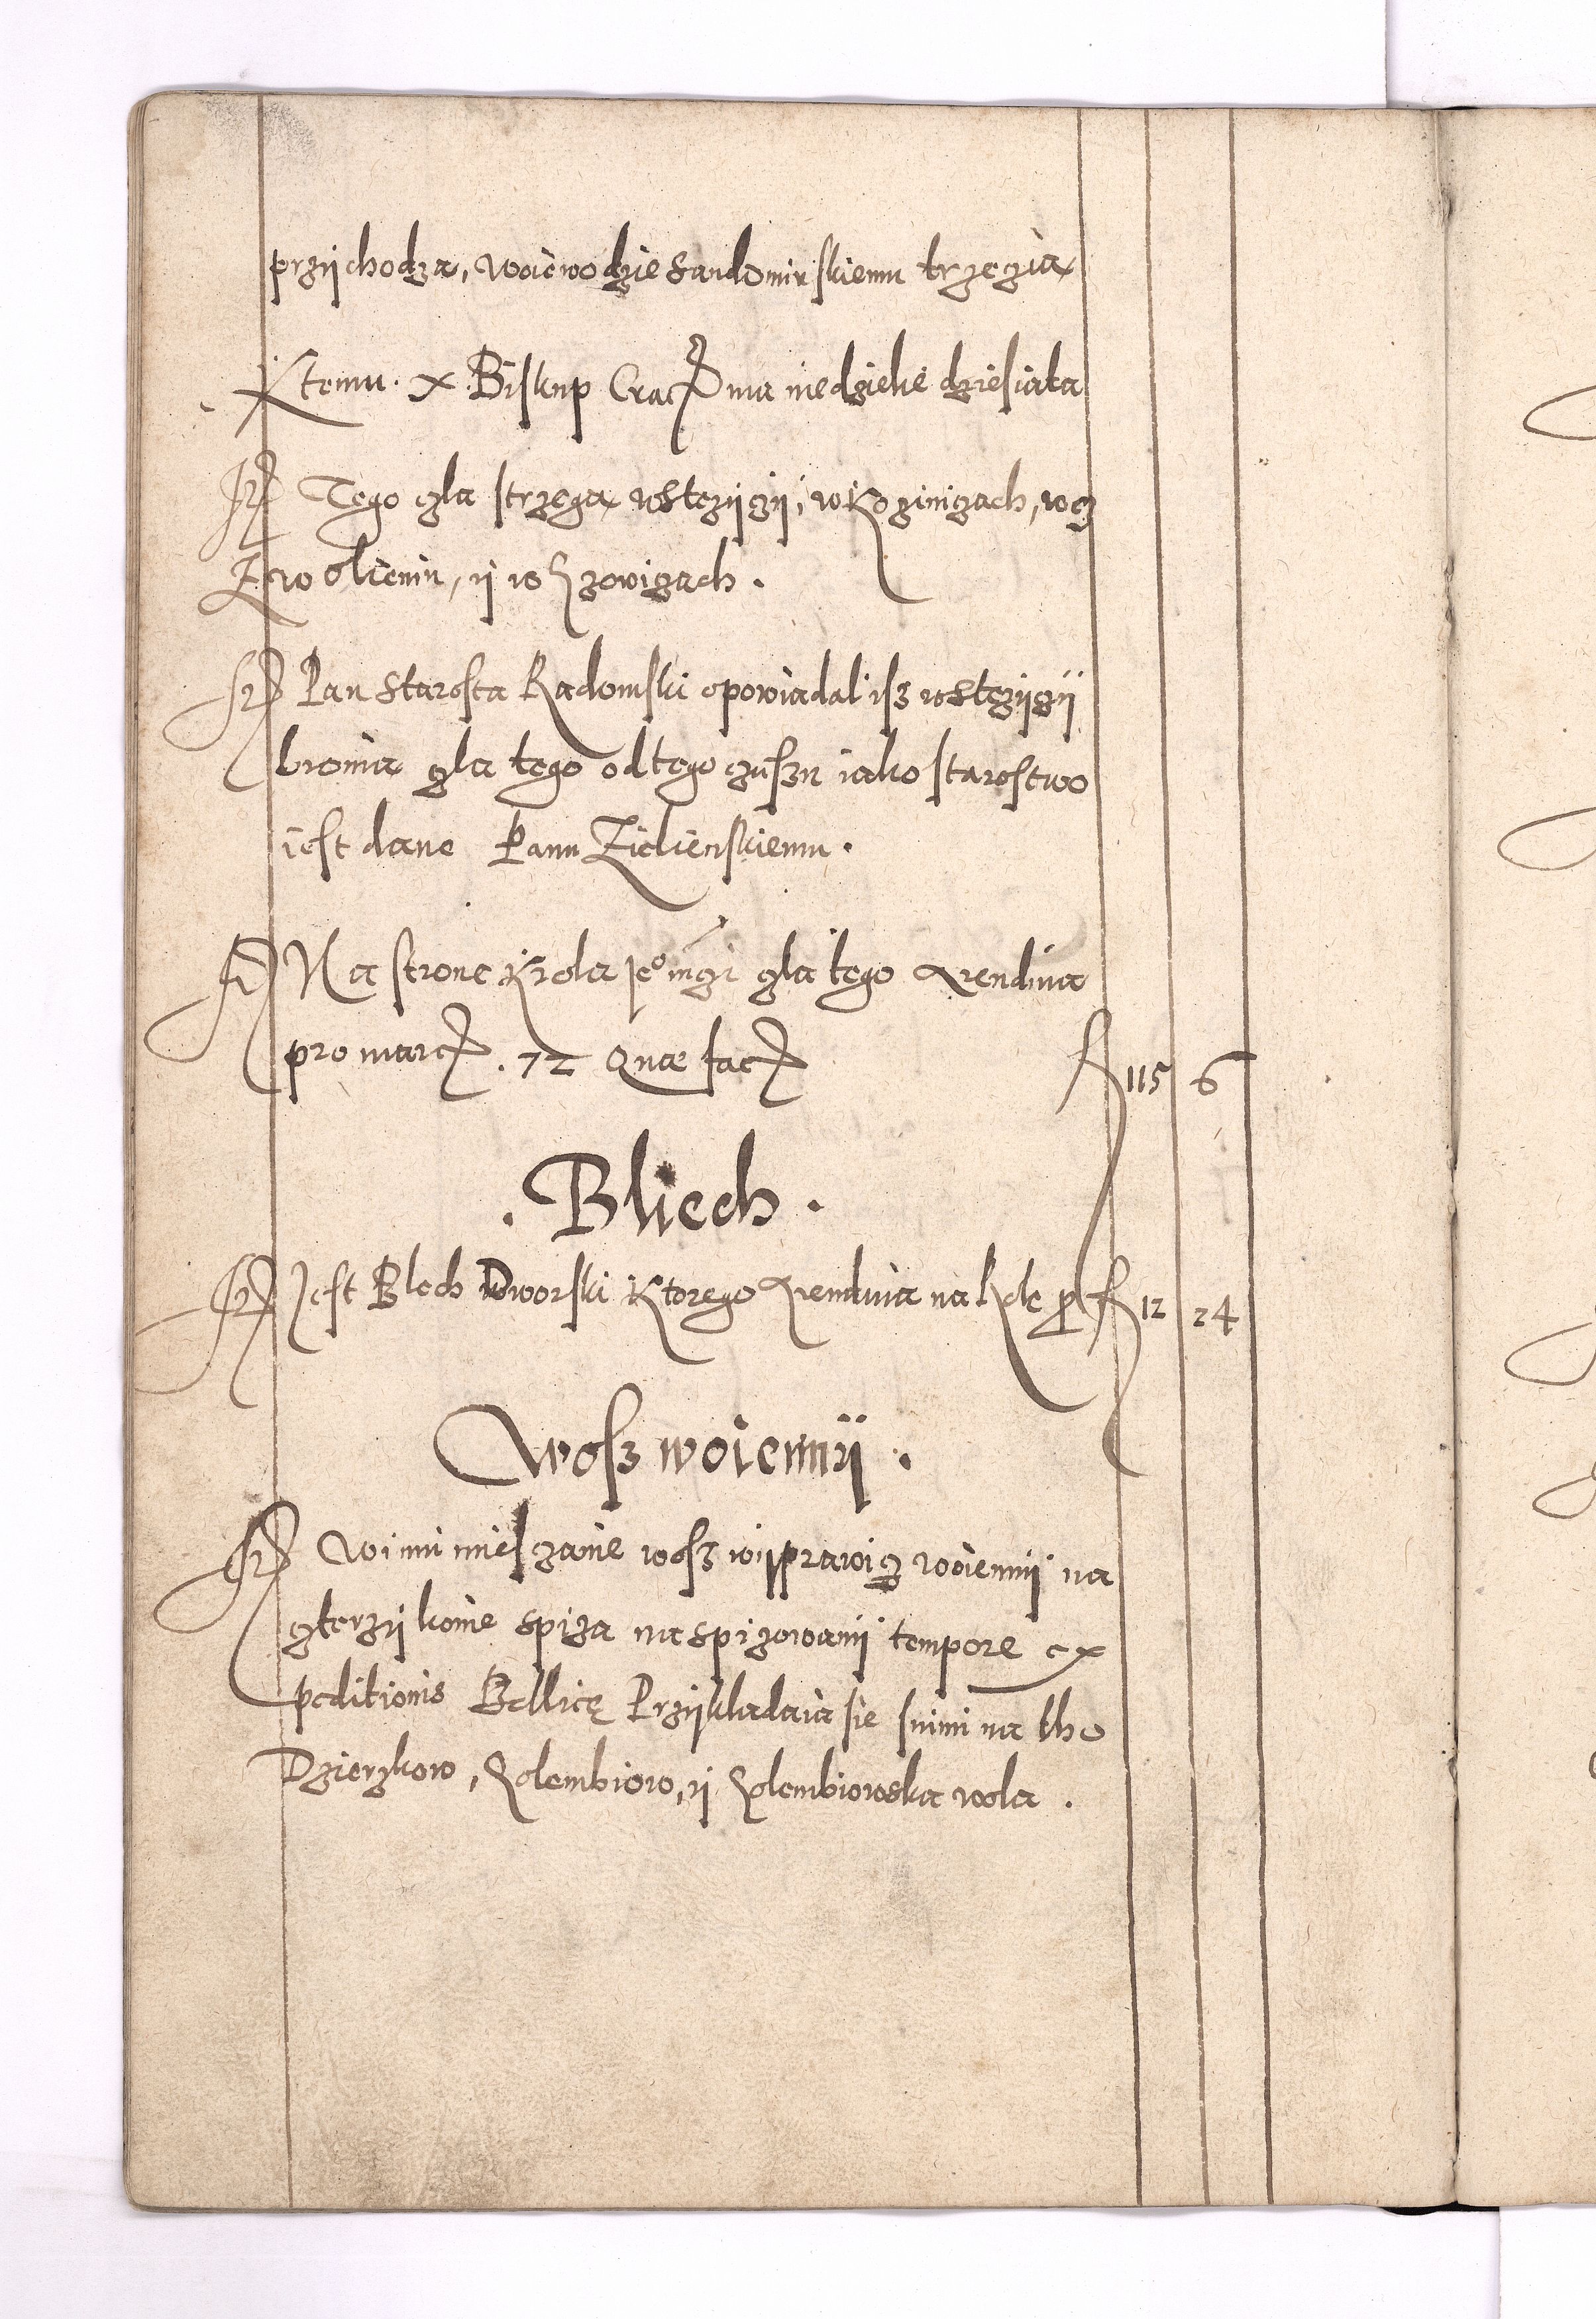 przÿchodza, woiewodzie Sandomirskiemu trzecia
Ktemu. X. Biskup Crac ma niedziele dziesiata
It Tego czla strzega wSteziczÿ, w Kozinicach, we
Zwolieniu, ÿ w Szowicach.
It Pan Starosta Radomski opowiadal isz wSteziczÿ
bronia czla tego od tego czuszu iako starostwo
iest dane Panu Zielienskiemu.
It Na strone Krola Jeo mczi czla tego Arendima
pro marc. 72 Quæ fac fl 115 6
. Bliech .
It Jest Blech Dworski Ktorego Arenduia na Rok p fl 12 24
Wosz woiennÿ .
It Winni miesczanie wosz wÿprawicz woiennÿ na
czterzÿ konie spiza na spizowanÿ tempore ex
peditionis Bellicę Przÿkladaia sie snimi na tho
Dzierzkow, Golembiow, ÿ Golembiowska wola .